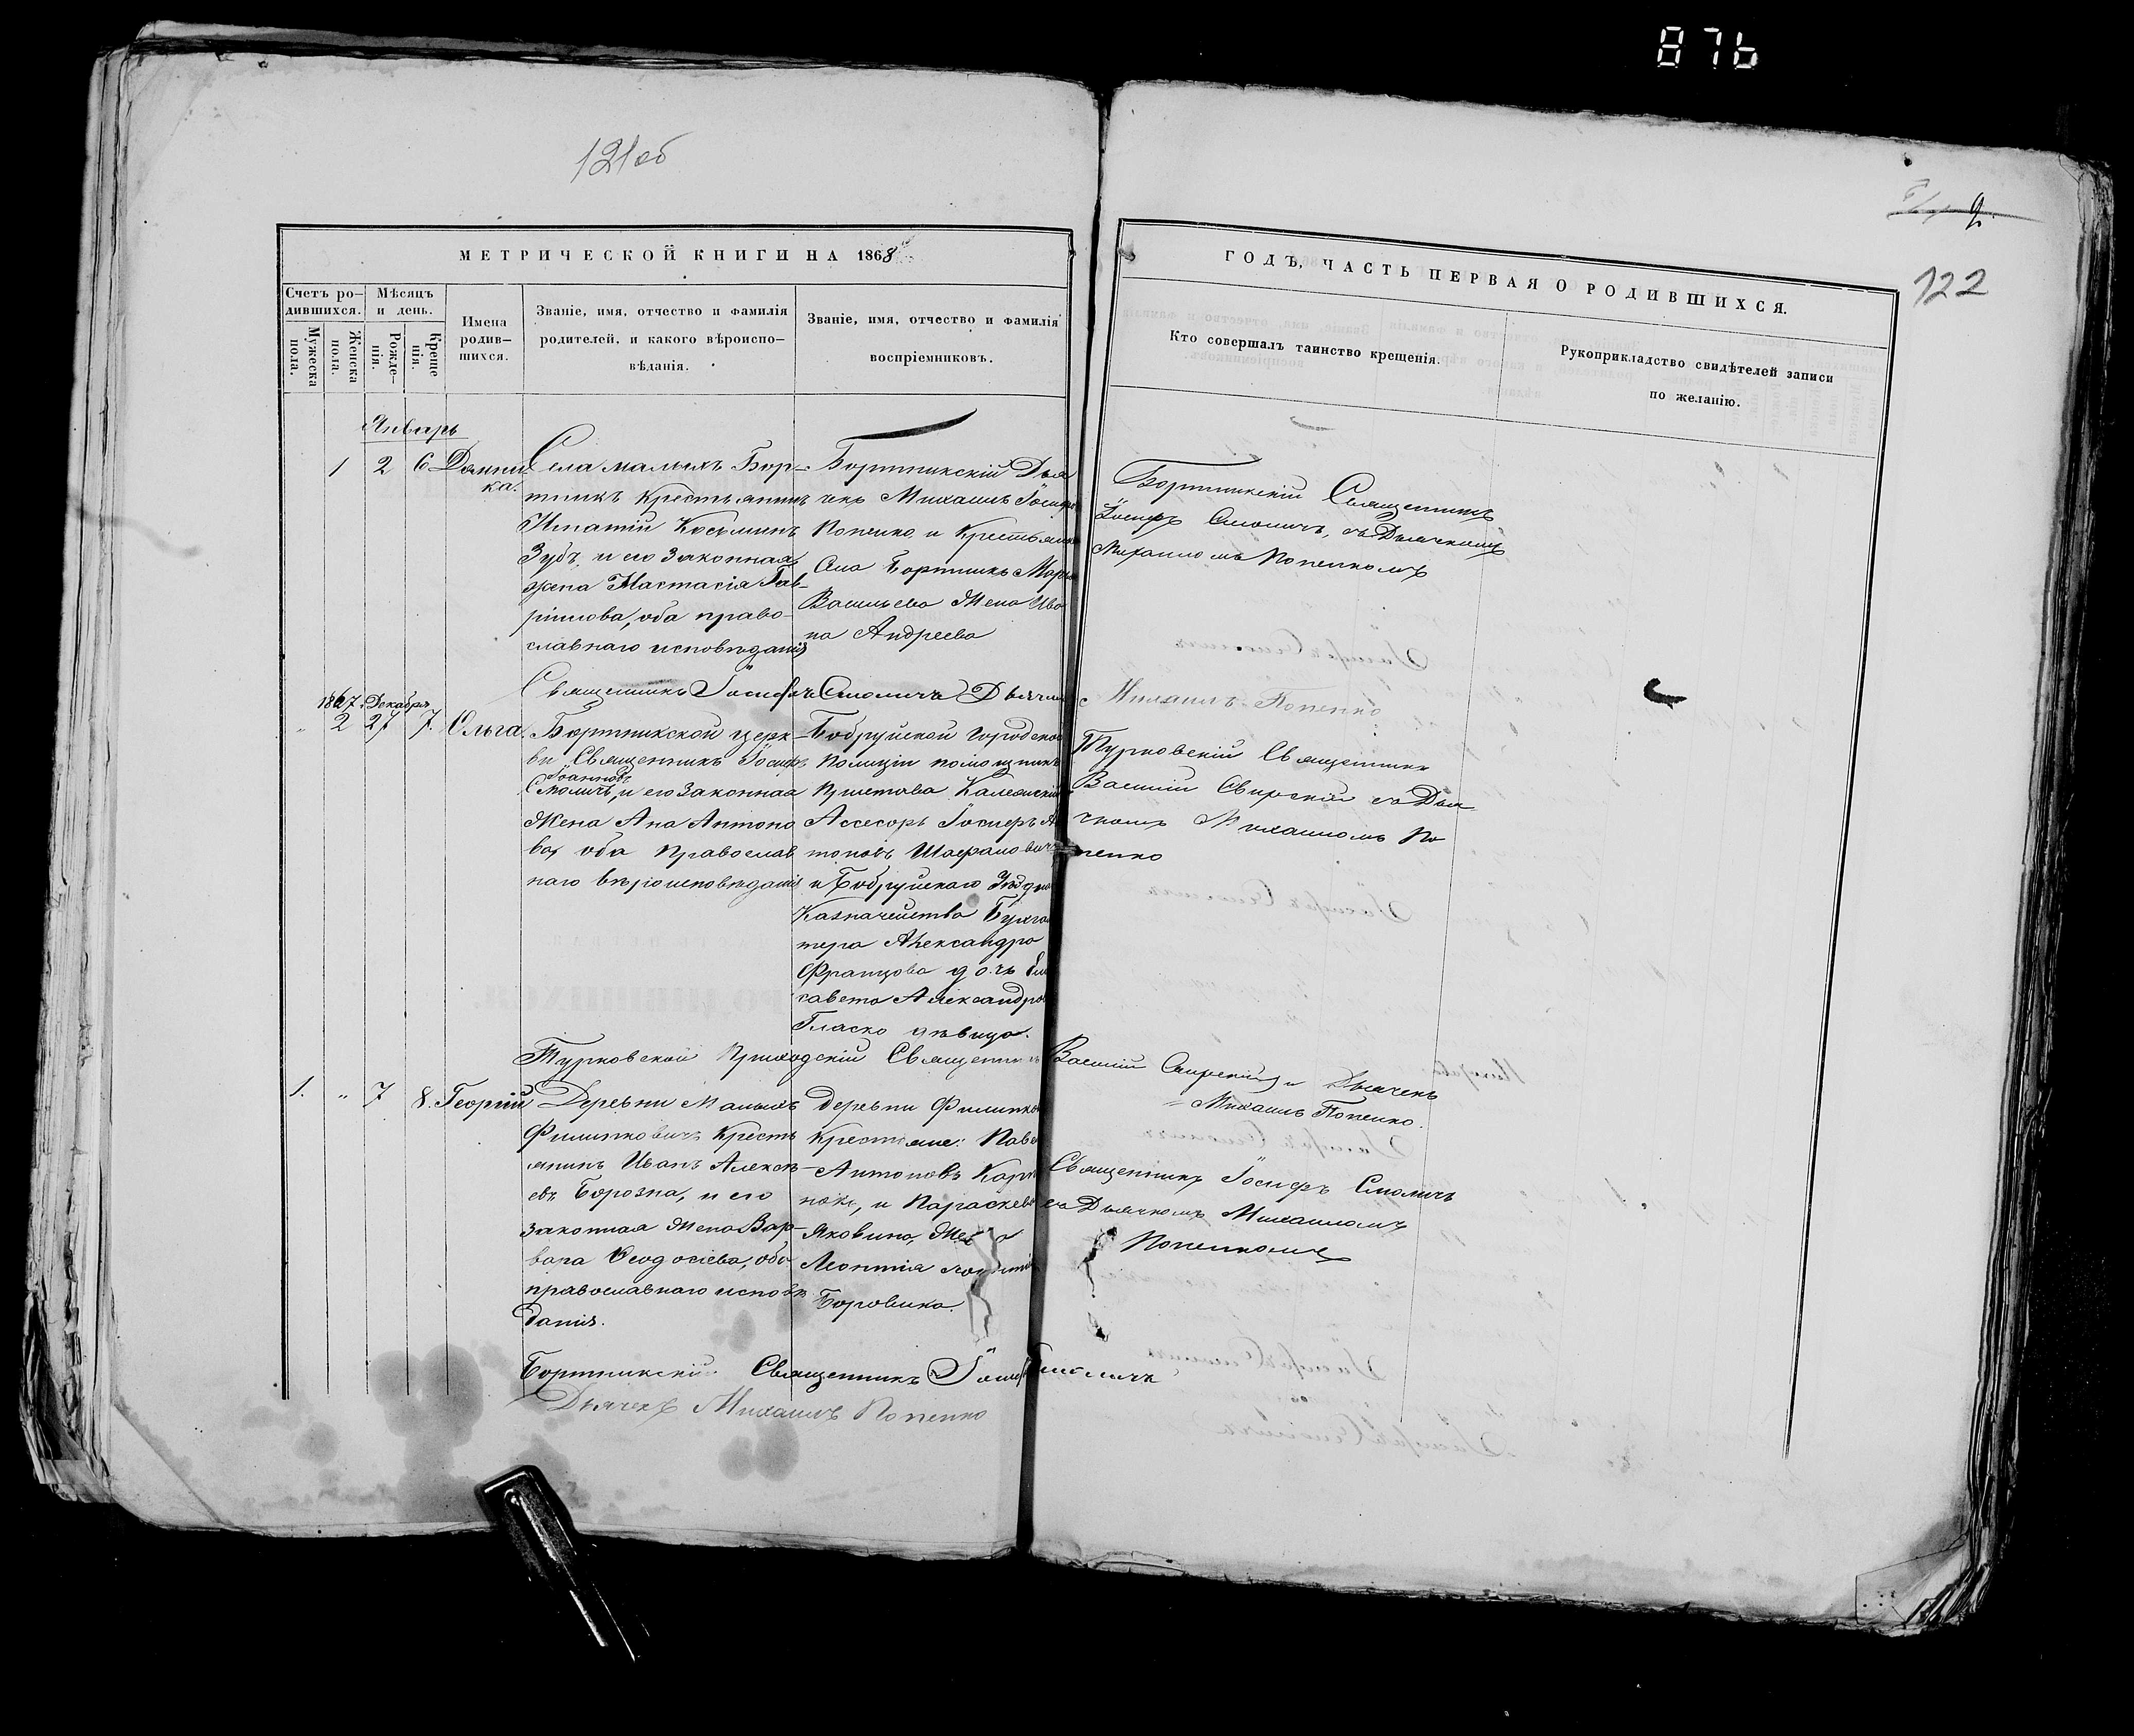 876
121об
9.
122
МЕТРИЧЕСКОЙ КНИГИ НА 1868
ГОДЪ, ЧАСТЬ ПЕРВАЯ О РОДИВШИХСЯ.
Счетъ ро-
дившихся.
Мужеска
пола.
Женска
пола.
Мѣсяцъ
и день.
Рожде-
нія.
Креще
нія.
Имена
родив-
шихся.
Званіе, имя, отчество и фамилія
родителей, и какого вѣроиспо-
вѣданія.
Званіе, имя, отчество и фамилія
воспріемниковъ.
Кто совершалъ таинство крещенія.
Рукоприкладство свидѣтелей записи
по желанію.
Январь
1 2 6 Домни
ка.
Села малыхъ Бор-
тникъ крестьянинъ
Игнатій Косьминъ
Зубъ, и его законная
жена Настасія Гав-
ріилова, оба право-
славнаго исповѣданія
Бортникскій Дья
чекъ Михаилъ Іосифо
Попенко и крестьянка
Села Бортникъ Марья
Васильева жена Ива
на Андреева
Бортникскій Священникъ
Іосифъ Смоличъ, съ Дьячкомъ
Михаиломъ Попенкомъ
Священникъ Іосифъ Смоличъ Дьячекъ Михаилъ Попенко
1867. Декабря
" 2 27 7. Ольга
Бортникской церк-
ви Священникъ Іосифъ
Іоанновъ
Смоличъ, и его законная
жена Ана Антоно
ва, оба православ
наго вѣроисповѣданія
Бобруйской городской
Полиціи помощникъ
Пристава Колежскій
Ассесоръ Іосифъ Ан
тоновъ Шафрановичъ
и Бобруйскаго Уѣздна
Казначейства Бухгал
тера Александра
Францова дочь Ели
савета Александро
Гласко дѣвица.
Турковскій Священникъ
Василій Свирскій съ Дья
чкомъ Михаиломъ По
пенко
Турковской Приходскій Священникъ Василій Свирскій и Дьячекъ
Михаилъ Попенко.
1. " 7 8. Георгій
Деревни Малыхъ
Филипковичъ Кресть
янинъ Иванъ Алексѣ-
евъ Борозна, и его
законная жена Вар-
вара Ѳеодосіева, оба
православнаго исповѣ
данія.
Деревни Филипко
крестьяне: Паве
Антоновъ Карп
и Параскева
Яковина, Жена
Леонтія
Боровика.
Священникъ Іосифъ Смоличъ
съ Дьячкомъ Михаиломъ
Попенкомъ
Бортникскій Священникъ Іосифъ Смоличъ
Дьячекъ Михаилъ Попенко